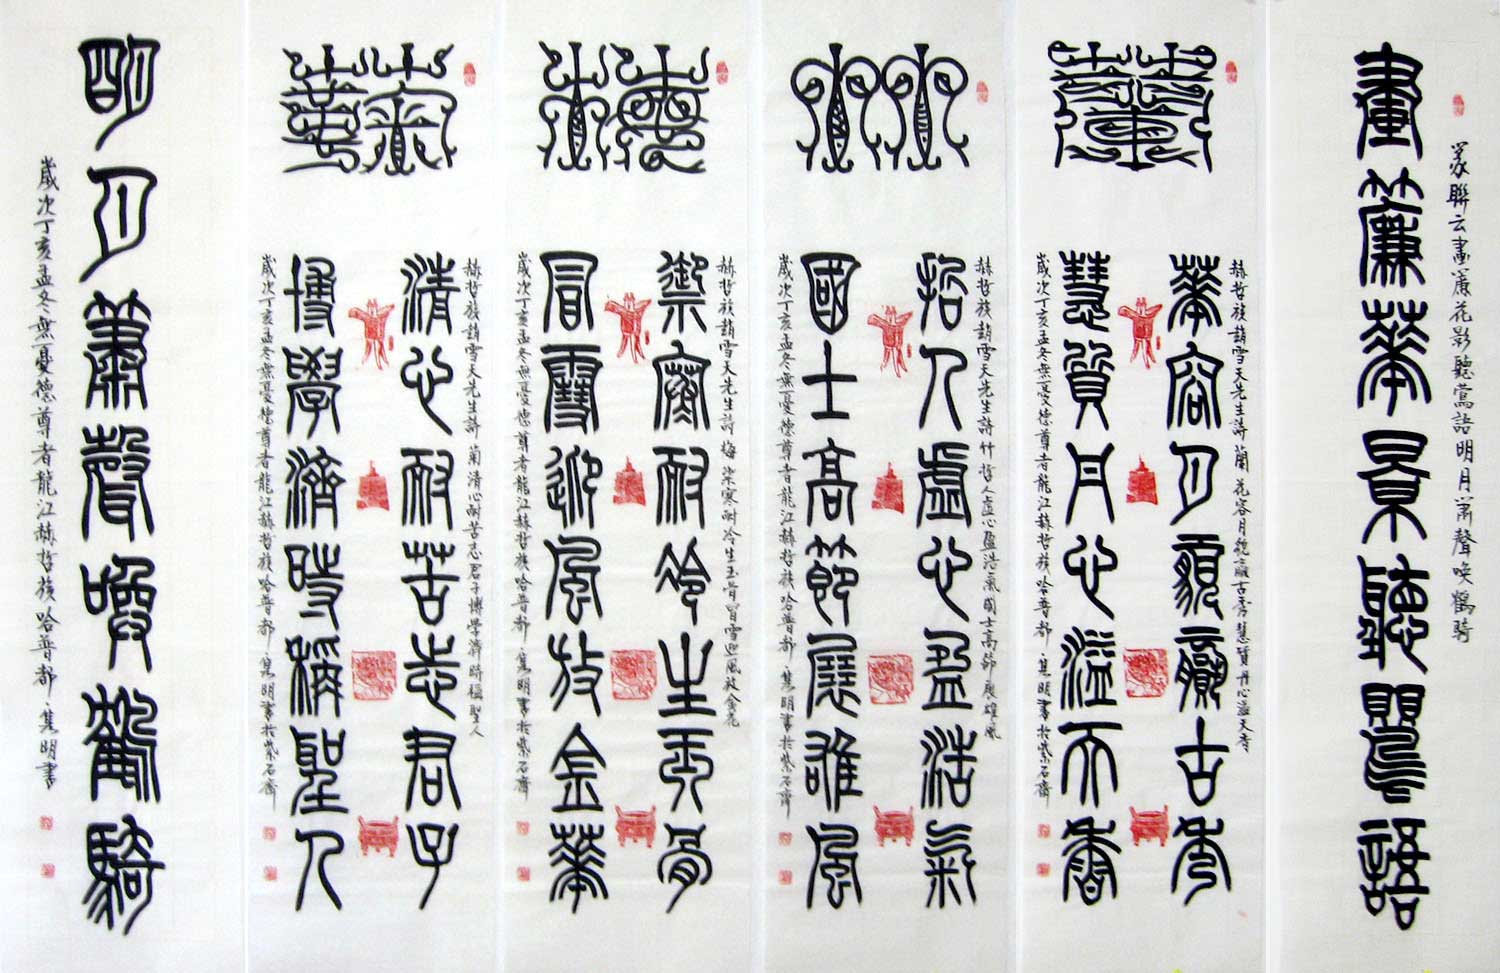 畫簾華景聽鸎語
篆聯云畫簾花影聽鶯語明月簫聲喚鶴騎
赫哲族趙雪天先生詩 蘭 花容月貌贏古秀慧質丹心溢天香
華容月貌贏古秀
慧質丹心溢天香
歲次丁亥孟冬無憂德尊者龍江赫哲族哈普都·隽明書於紫石齋
竹
赫哲族趙雪天先生詩 竹 哲人虛心盈浩氣國士高節展雄風
哲人虛心盈浩氣
國士高節展雄風
歲次丁亥孟冬無憂德尊者龍江赫哲族哈普都·隽明書於紫石齋
赫哲族趙雪天先生詩 梅 禦寒耐冷生玉骨冒雪迎風放金花
禦寒耐冷生玉骨
冒雪迎風放金華
歲次丁亥孟冬無憂德尊者龍江赫哲族哈普都·隽明書於紫石齋
赫哲族趙雪天先生詩 菊 清心耐苦志君子博學濟時稱聖人
清心耐苦志君子
博學濟時稱聖人
歲次丁亥孟冬無憂德尊者龍江赫哲族哈普都·隽明書於紫石齋
明月簫聲喚鶴騎
歲次丁亥孟冬無憂德尊者龍江赫哲族哈普都·隽明書